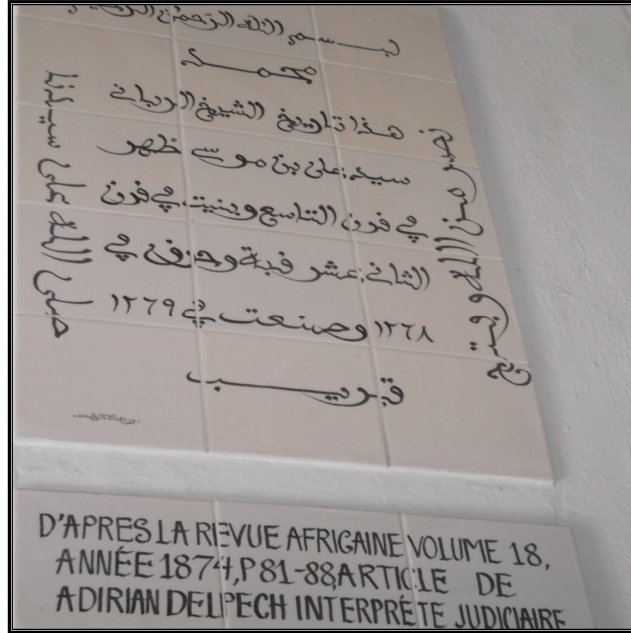 بسم الله الرحمن الرحيم
صلى الله على سيدنا
محمد
هذا تاريخ الشيخ الرباني
سيد علي بن موسى ظهر
في قرن التاسع وبنيت في قرن
الثاني عشر قبة في
١٢٦٨ وصنعت في ١٢٦٩
نصر من الله وفتح
قريب
D'APRES LA REVUE AFRICAINE VOLUME 18,
ANNÉE 1874,P 81-88,ARTICLE DE
ADIRIAN DELPECH INTERPRÉTE JUDICIAIRE